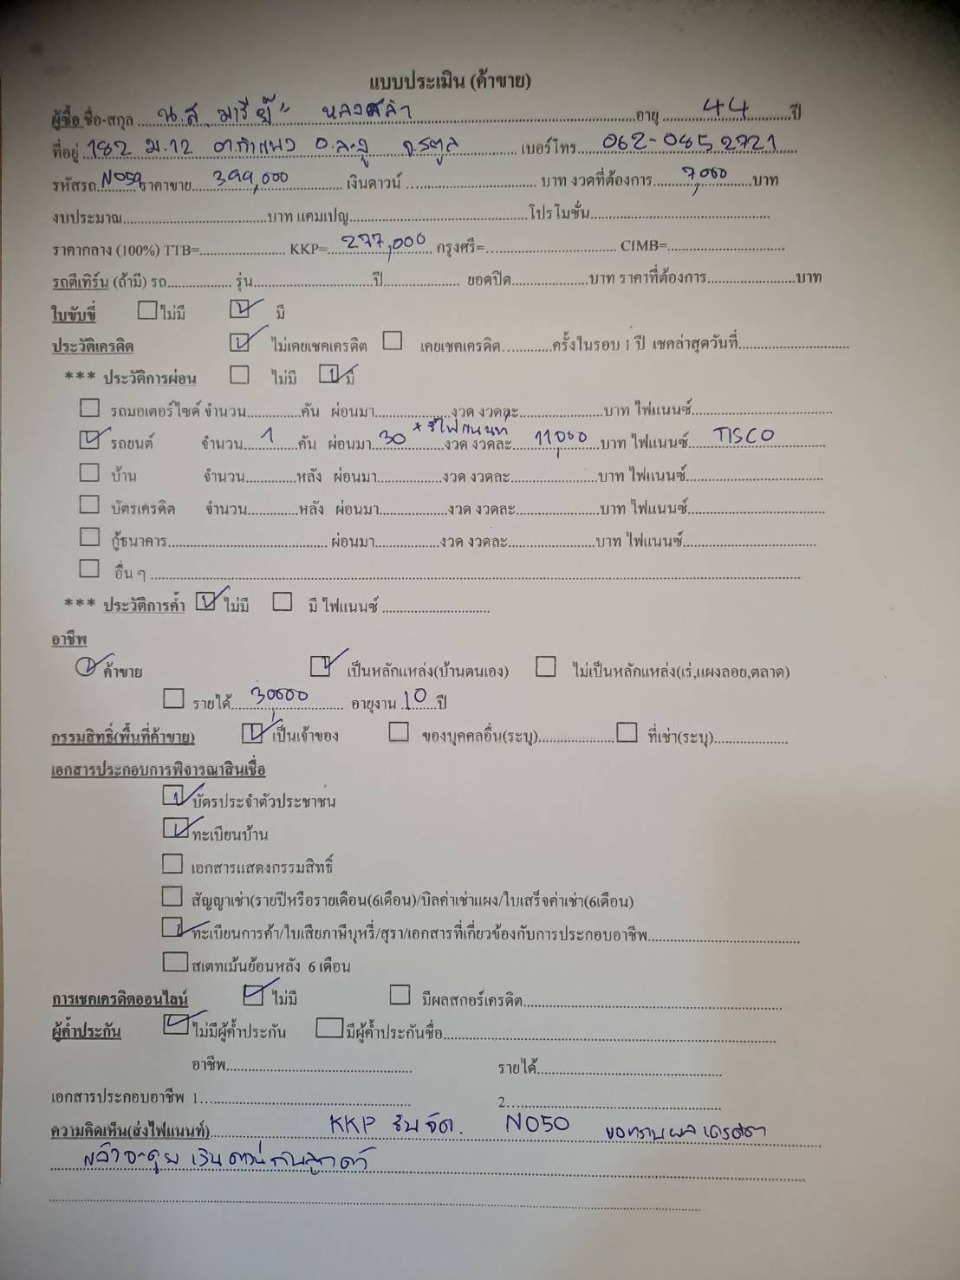 แบบประเมิน (ค้าขาย)
ผู้ซื้อ ชื่อ-สกุล น.ส มารีย๊ะ หลงสลำ อายุ 44 ปี
ที่อยู่ 182 ม.12 ต.กำแพง อ.ละงู จ.สตูล เบอร์โทร 062-0852721
รหัสรถ N050 ราคาขาย 399,000 เงินดาวน์ บาท งวดที่ต้องการ 7,000 บาท
งบประมาณ บาท แคมเปญ โปรโมชั่น
ราคากลาง (100%) TTB= KKP= 277,000 กรุงศรี= CIMB=
รถตีเทิร์น (ถ้ามี) รถ รุ่น ปี ยอดปิด บาท ราคาที่ต้องการ บาท
ใบขับขี่ ไม่มี มี
ประวัติเครดิต ไม่เคยเชคเครดิต เคยเชคเครดิต ครั้งในรอบ 1 ปี เชคล่าสุดวันที่
*** ประวัติการผ่อน ไม่มี มี
รถมอเตอร์ไซค์ จำนวน คัน ผ่อนมา งวด งวดละ บาท ไฟแนนซ์
*รีไฟแนนท์
รถยนต์ จำนวน 1 คัน ผ่อนมา 30 งวด งวดละ 11,000 บาท ไฟแนนซ์ TISCO
บ้าน จำนวน หลัง ผ่อนมา งวด งวดละ บาท ไฟแนนซ์
บัตรเครดิต จำนวน หลัง ผ่อนมา งวด งวดละ บาท ไฟแนนซ์
กู้ธนาคาร ผ่อนมา งวด งวดละ บาท ไฟแนนซ์
อื่น ๆ
*** ประวัติการค้ำ ไม่มี มี ไฟแนนซ์
อาชีพ
ค้าขาย เป็นหลักแหล่ง(บ้านตนเอง) ไม่เป็นหลักแหล่ง(เร่,แผงลอย,ตลาด)
รายได้ 30,000 อายุงาน 10 ปี
กรรมสิทธิ์(พื้นที่ค้าขาย) เป็นเจ้าของ ของบุคคลอื่น(ระบุ) ที่เช่า(ระบุ)
เอกสารประกอบการพิจารณาสินเชื่อ
บัตรประจำตัวประชาชน
ทะเบียนบ้าน
เอกสารแสดงกรรมสิทธิ์
สัญญาเช่า(รายปีหรือรายเดือน(6เดือน)/บิลค่าเช่าแผง/ใบเสร็จค่าเช่า(6เดือน)
ทะเบียนการค้า/ใบเสียภาษีบุหรี่/สุรา/เอกสารที่เกี่ยวข้องกับการประกอบอาชีพ
สเตทเม้นย้อนหลัง 6 เดือน
การเชคเครดิตออนไลน์ ไม่มี มีผลสกอร์เครดิต
ผู้ค้ำประกัน ไม่มีผู้ค้ำประกัน มีผู้ค้ำประกันชื่อ
อาชีพ รายได้
เอกสารประกอบอาชีพ 1. 2.
ความคิดเห็น(ส่งไฟแนนท์) KKP รับจัด. N050 ขอทราบผลเครดิต
แล้วจะคุยเงินดาวน์กับลูกค้า